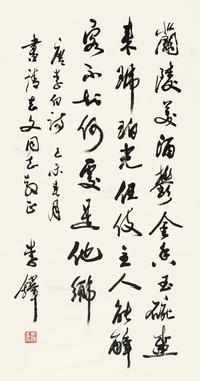 蘭陵美酒鬱金香玉碗盛
來琥珀光但使主人能醉
客不知何處是他鄉
唐李白詩 己未春月
書請志文同志教正
李鐸